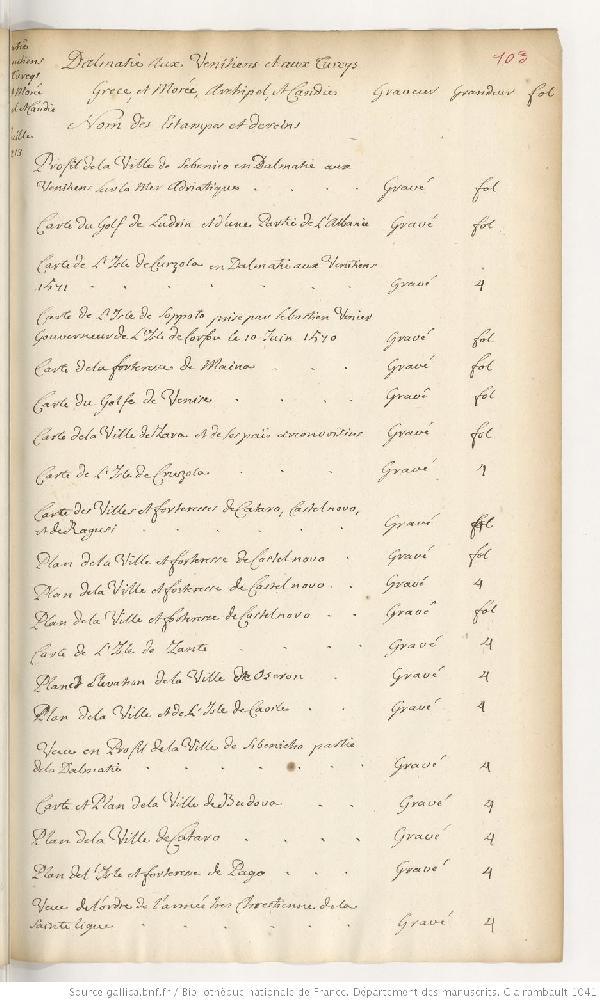 103
Dalmatie aux Venitiens et aux Turcqs
Grece, et Morée, Archipel, et Candie Graveur Grandeur fol
Nom des Estampes et deseins
Profil de la Ville de Sebenico en Dalmatie aux
Venitiens sur la Mer Adriatique . . . . Gravé fol
Carte du Golf de Ludrin et d'une Partie de L'Albanie Gravé fol
Carte de L'Isle de Curzola en Dalmatie aux Venitiens
1571 . . . . . . Gravé 4
Carte de L'Isle de Soppoto prise par Sebastien Venier
Gouverneur de L'Isle de Corfou le 10 Juin 1570 Gravé fol
Carte de la forteresse de Maina . . Gravé fol
Carte du Golfe de Venise . . . Gravé fol
Carte de la Ville de Zara et de ses païs circonvoisins Gravé fol
Carte de L'Isle de Cruzola . . . Gravé 4
Carte des Villes et forteresses de Cataro, Castelnovo,
et de Ragusi . . . . . . Gravé fol
Plan de la Ville et forteresse de Castelnovo . Gravé fol
Plan de la Ville et forteresse de Castelnovo . . Gravé 4
Plan de la Ville et forteresse de Castelnovo . . Gravé fol
Carte de L'Isle de Zante . . . Gravé 4
Plan et Elevation de la Ville de Oseron . Gravé 4
Plan de la Ville et de L'Isle de Caorle . . Gravé 4
Veue en Profil de la Ville de Sibenicho partie
de la Dalmatie . . . . . . Gravé 4
Carte et Plan de la Ville de Budova . . Gravé 4
Plan de la Ville de Cataro . . . . Gravé 4
Plan de l'Isle et forteresse de Pago . . . Gravé 4
Veue de l'ordre de l'armée tres Chrestienne de la
Sainte ligue . . . . . . Gravé 4
Source gallica.bnf.fr / Bibliothèque nationale de France. Département des manuscrits. Clairambault 1041